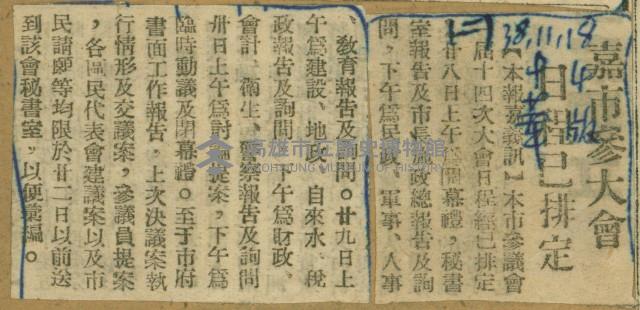 嘉市參大會
日程已排定
38,11,18
中華
【本報嘉義訊】本市參議會
届十四次大會日程經已排定
廿八日上午爲開幕禮，秘書
室報告及市長施政總報告及詢
問，下午爲民政、軍事、人事
、敎育報告及詢問。廿九日上
午爲建設、地政、自來水、稅
政報告及詢問，下午爲財政、
會計、衛生、警察報告及詢問
卅日上午爲討論提案，下午爲
臨時動議及閉幕禮。至于市府
書面工作報告，上次決議案執
行情形及交議案，參議員提案
，各區民代表會建議案以及市
民請願等均限於廿二日以前送
到該會秘書室，以便彙編。
高雄市立歷史博物館